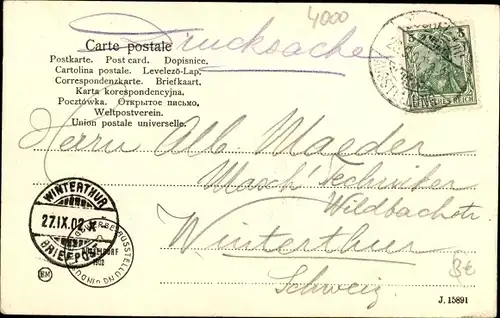 4000
Carte postale
Drucksache
Postkarte. Post card. Dopisnice.
Cartolina postale. Levelező-Lap.
Correspondenzkarte. Briefkaart.
Karta korespondencyjna.
Pocztówka. Открытое письмо.
Weltpostverein.
Union postale universelle.
REICH
Herrn Alb. Maeder
Masch. Techniker
Wildbachstr.
Winterthur
Schweiz
WINTERTHUR
27.IX.02.X
BRIEFPOST
AUSSTELLUNG
1902
EM
3€
J. 15891